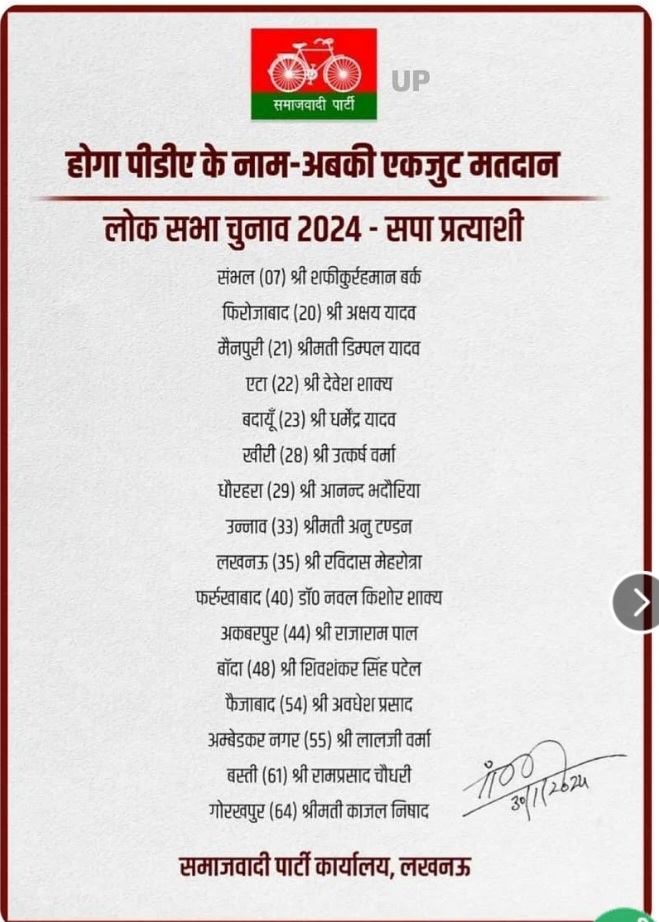 समाजवादी पार्टी
UP
होगा पीडीए के नाम-अबकी एकजुट मतदान
लोक सभा चुनाव 2024 - सपा प्रत्याशी
संभल (07) श्री शफीकुर्रहमान बर्क
फिरोजाबाद (20) श्री अक्षय यादव
मैनपुरी (21) श्रीमती डिम्पल यादव
एटा (22) श्री देवेश शाक्य
बदायूँ (23) श्री धर्मेंद्र यादव
खीरी (28) श्री उत्कर्ष वर्मा
धौरहरा (29) श्री आनन्द भदौरिया
उन्नाव (33) श्रीमती अनु टण्डन
लखनऊ (35) श्री रविदास मेहरोत्रा
फर्रुखाबाद (40) डॉ0 नवल किशोर शाक्य
अकबरपुर (44) श्री राजाराम पाल
बाँदा (48) श्री शिवशंकर सिंह पटेल
फैजाबाद (54) श्री अवधेश प्रसाद
अम्बेडकर नगर (55) श्री लालजी वर्मा
बस्ती (61) श्री रामप्रसाद चौधरी
गोरखपुर (64) श्रीमती काजल निषाद
30/1/2024
समाजवादी पार्टी कार्यालय, लखनऊ